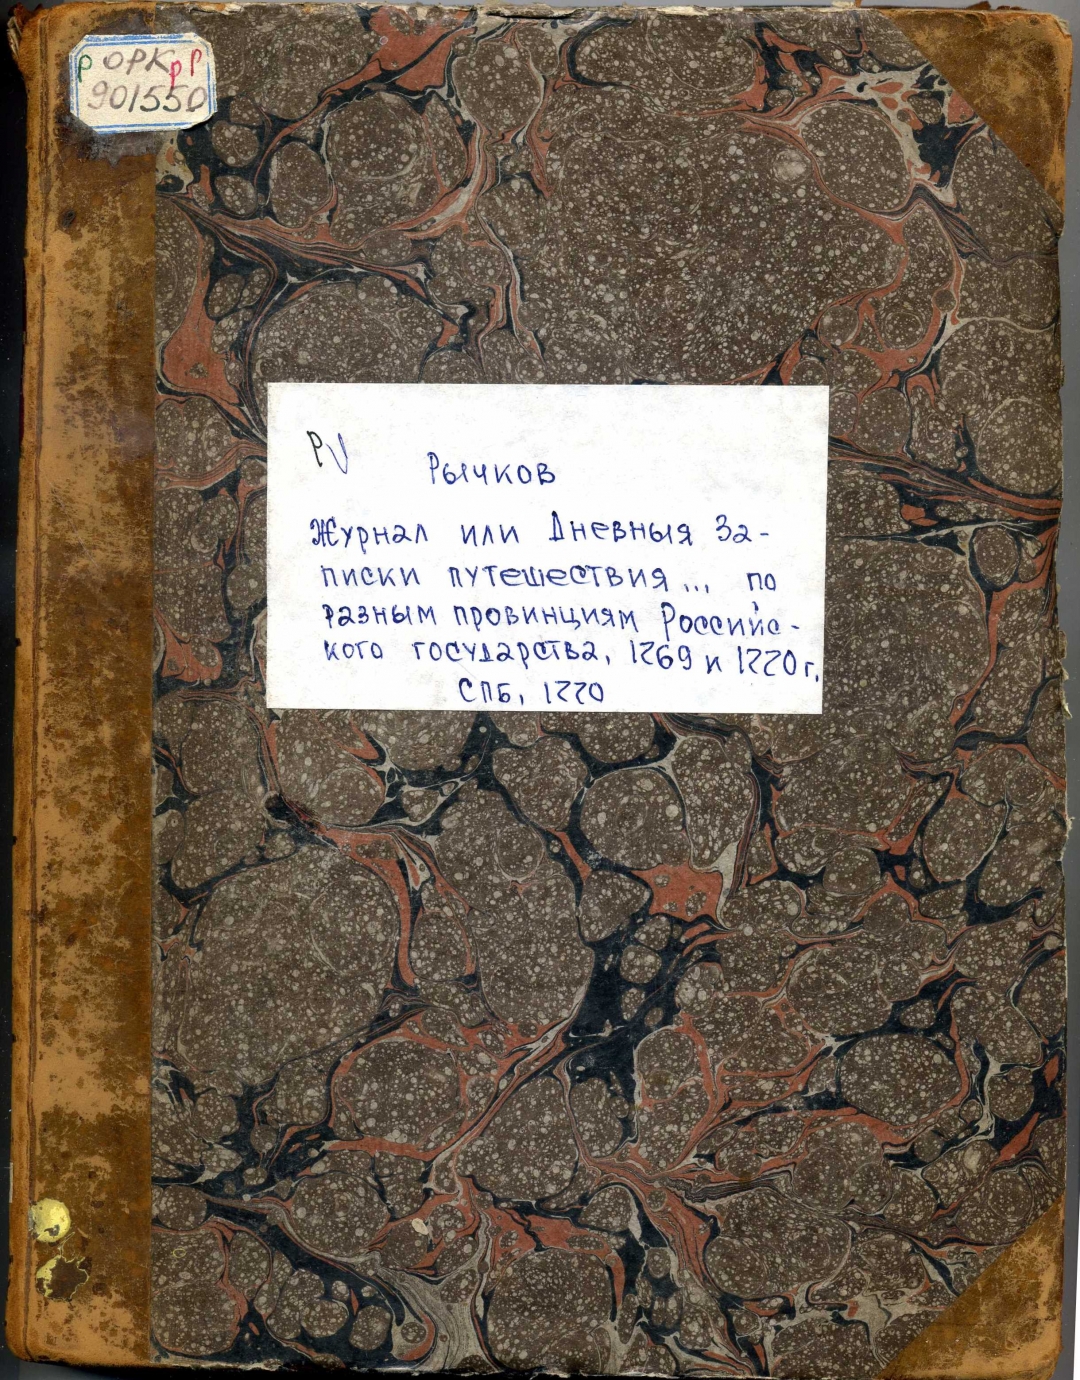 р ОРК р Р
901550
Р V
Рычков
Журнал или Дневныя За-
писки путешествия... по
разным провинциям Российс-
кого государства, 1769 и 1770 г.
СПБ, 1770